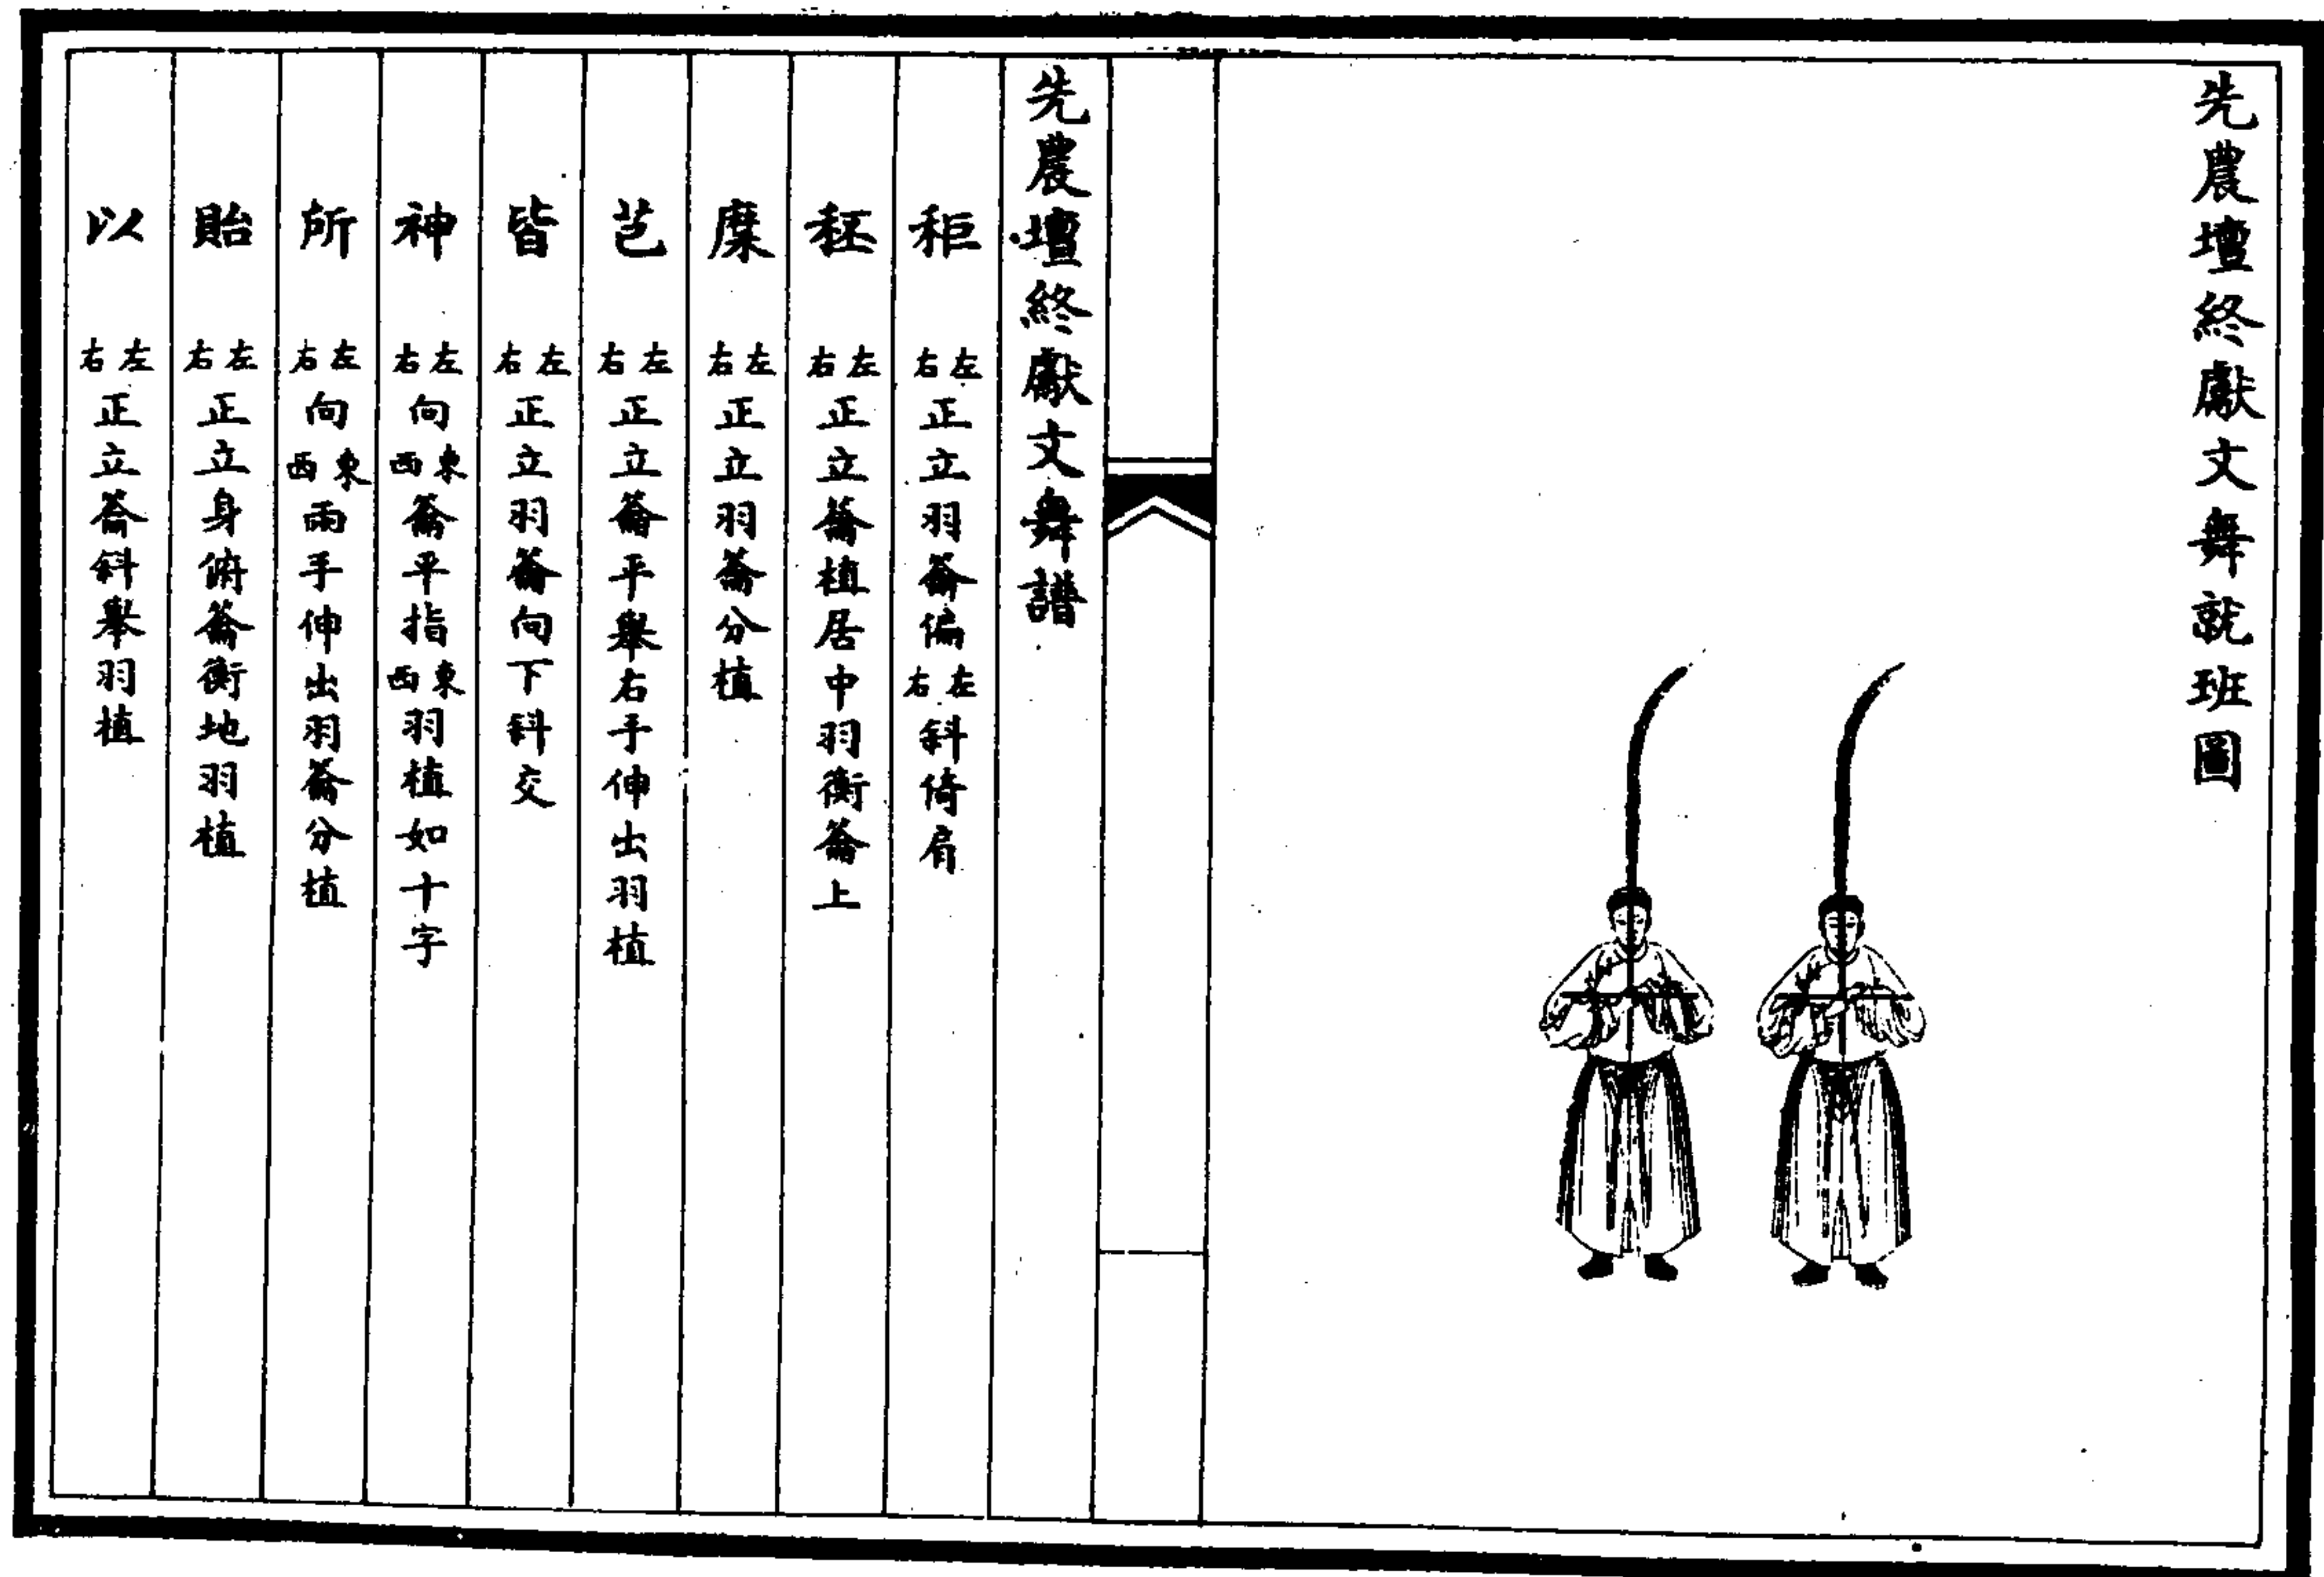 先農壇終獻文舞就班圖
先農壇終獻文舞譜
秬 左右正立羽籥偏左右斜倚肩
秠 左右正立籥植居中羽衡籥上
穈 左右正立羽籥分植
芑 左右正立籥平舉右手伸出羽植
皆 左右正立羽籥向下斜交
神 左右向東西籥平指東西羽植如十字
所 左右向東西兩手伸出羽籥分植
貽 左右正立身俯籥衡地羽植
以 左右正立籥斜舉羽植